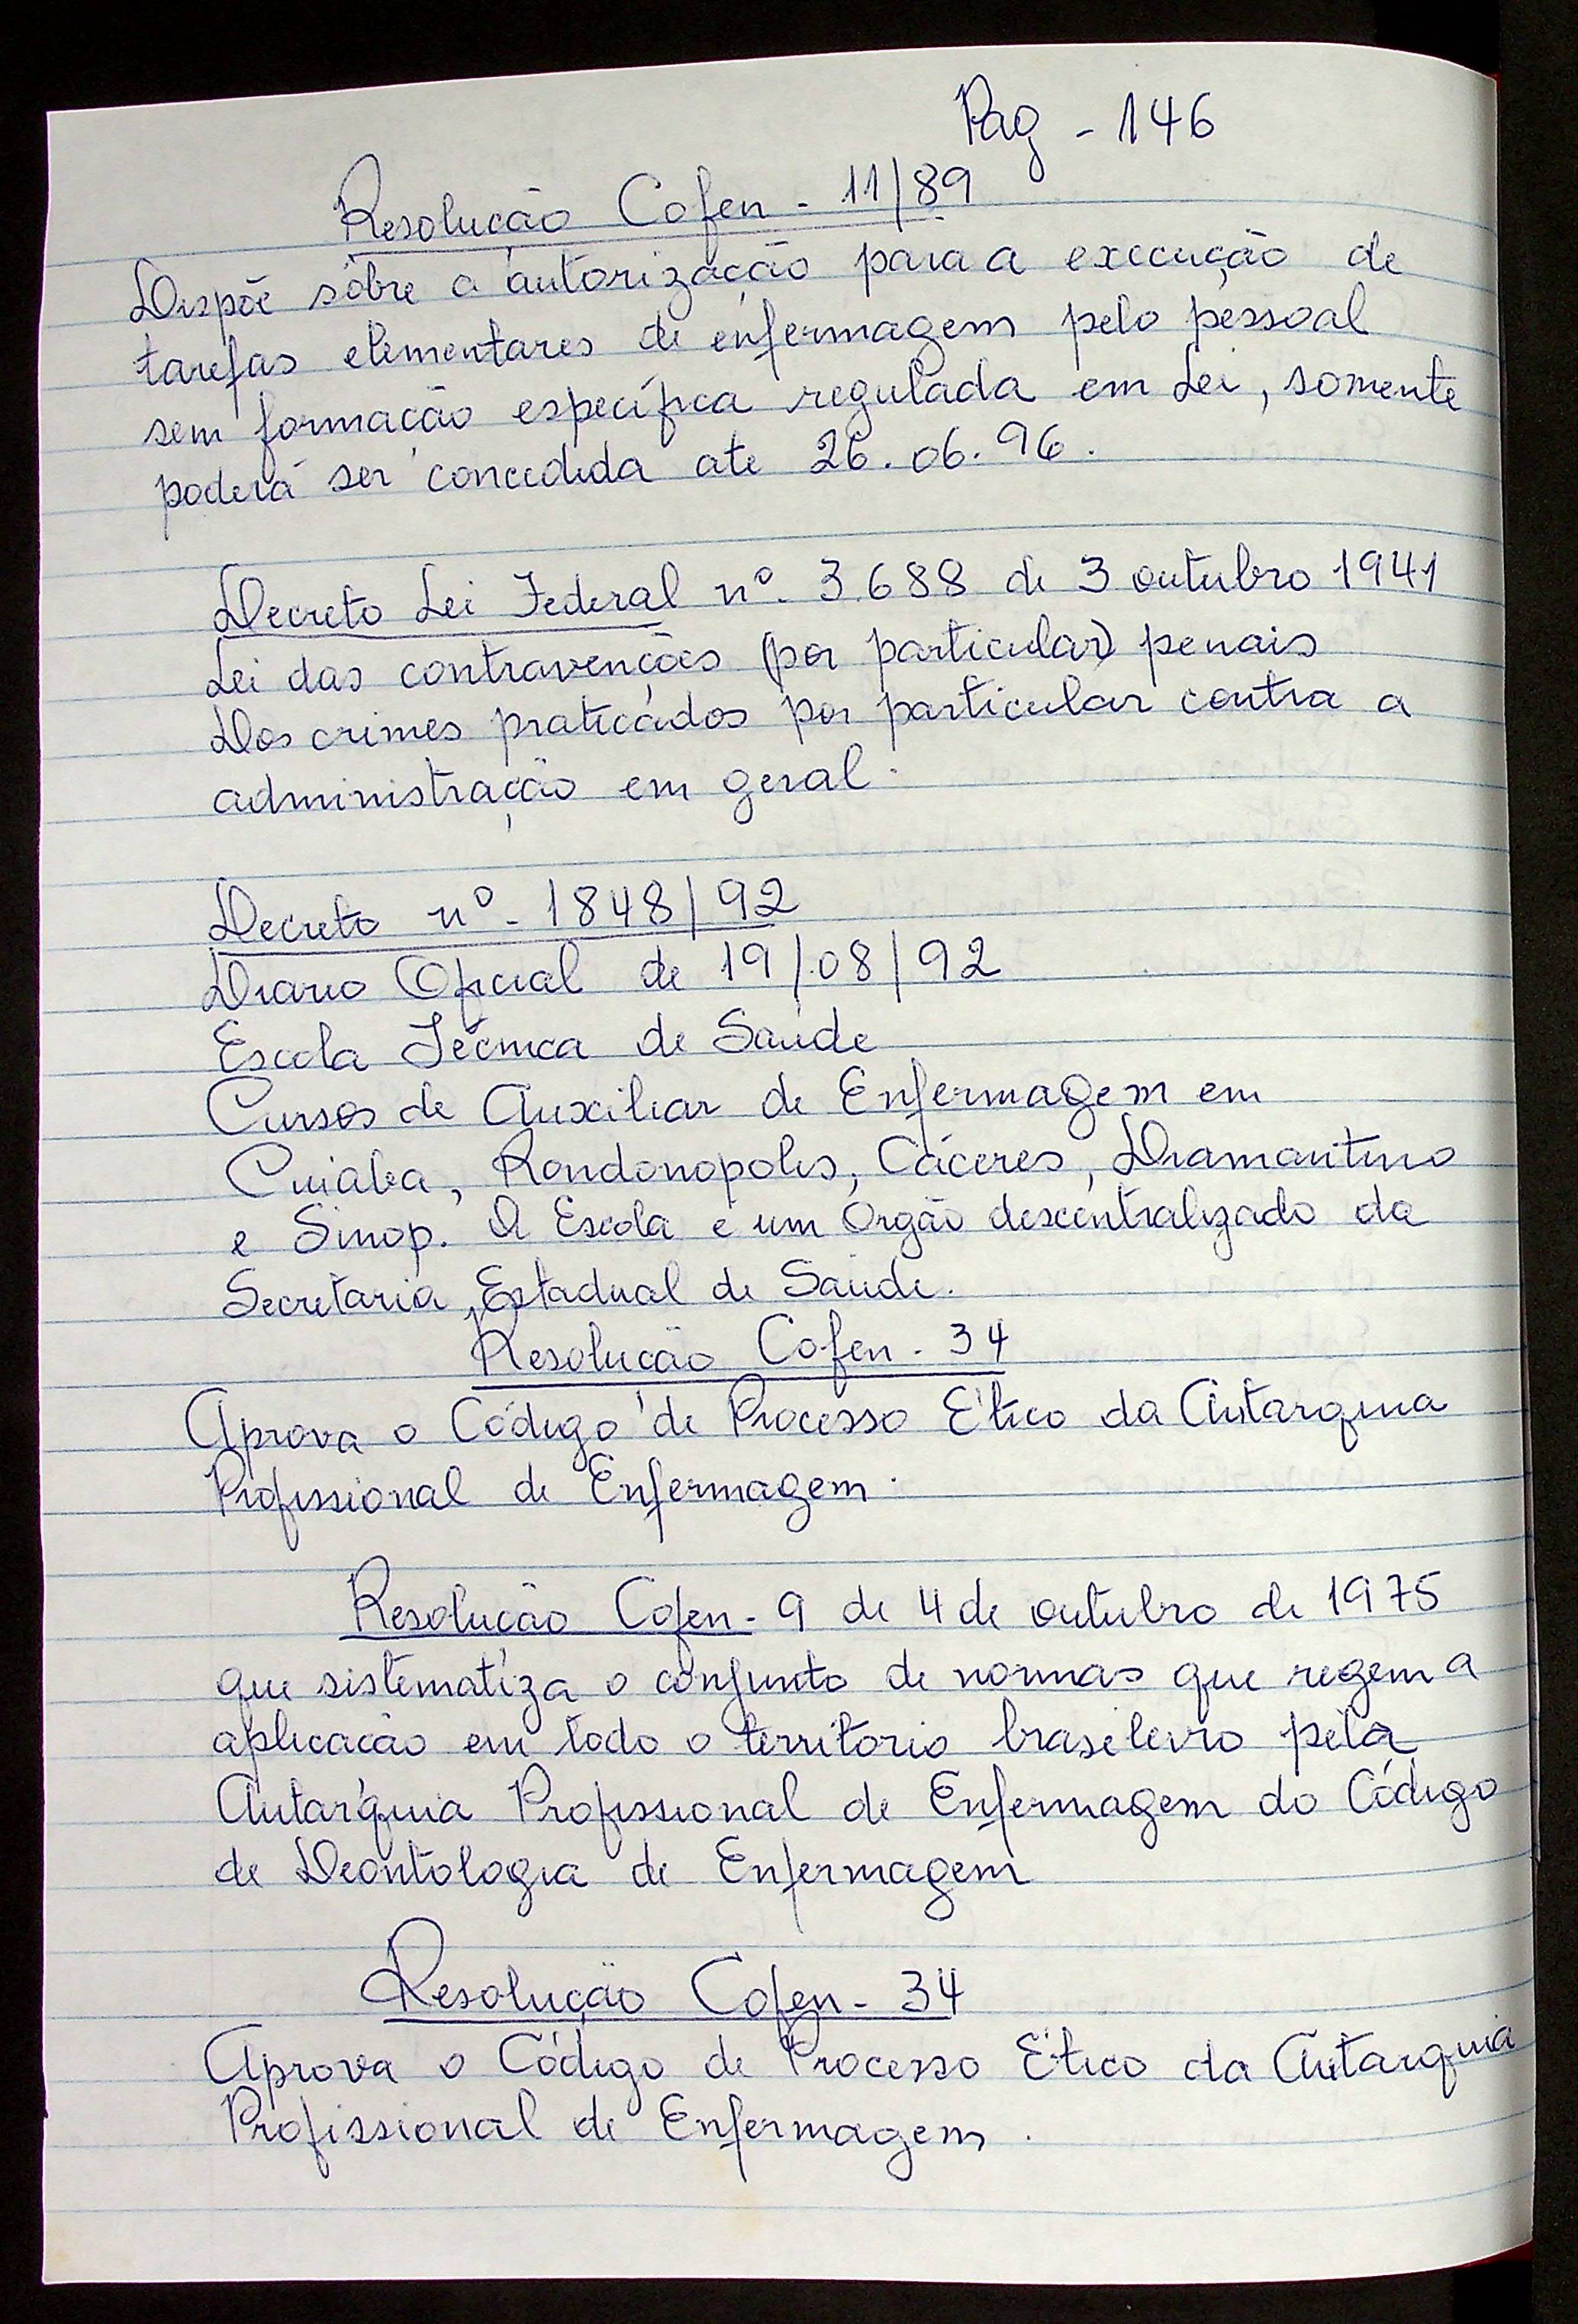 Pag - 146
Resolução Cofen - 11/89
Dispõe sôbre a autorização para a execução de
tarefas elementares de enfermagem pelo pessoal
sem formação específica regulada em Lei, somente
poderá ser concedida ate 26.06.96.
Decreto Lei Federal nº. 3.688 de 3 outubro 1941
Lei das contravenções (por particular) penais
Dos crimes praticados por particular contra a
administração em geral.
Decreto nº - 1848/92
Diario Oficial de 19/08/92
Escola Técnica de Saúde
Cursos de Auxiliar de Enfermagem em
Cuiaba, Rondonopolis, Cáceres, Diamantino
e Sinop. A Escola e um Orgão descentralizado da
Secretaria Estadual de Saude.
Resolução Cofen - 34
Aprova o Código de Processo Etico da Autarquia
Profissional de Enfermagem.
Resolução Cofen - 9 de 4 de outubro de 1975
que sistematiza o conjunto de normas que regem a
aplicação em todo o territorio brasileiro pela
Autarquia Profissional de Enfermagem do Código
de Deontologia de Enfermagem
Resolução Cofen - 34
Aprova o Código de Processo Etico da Autarquia
Profissional de Enfermagem.